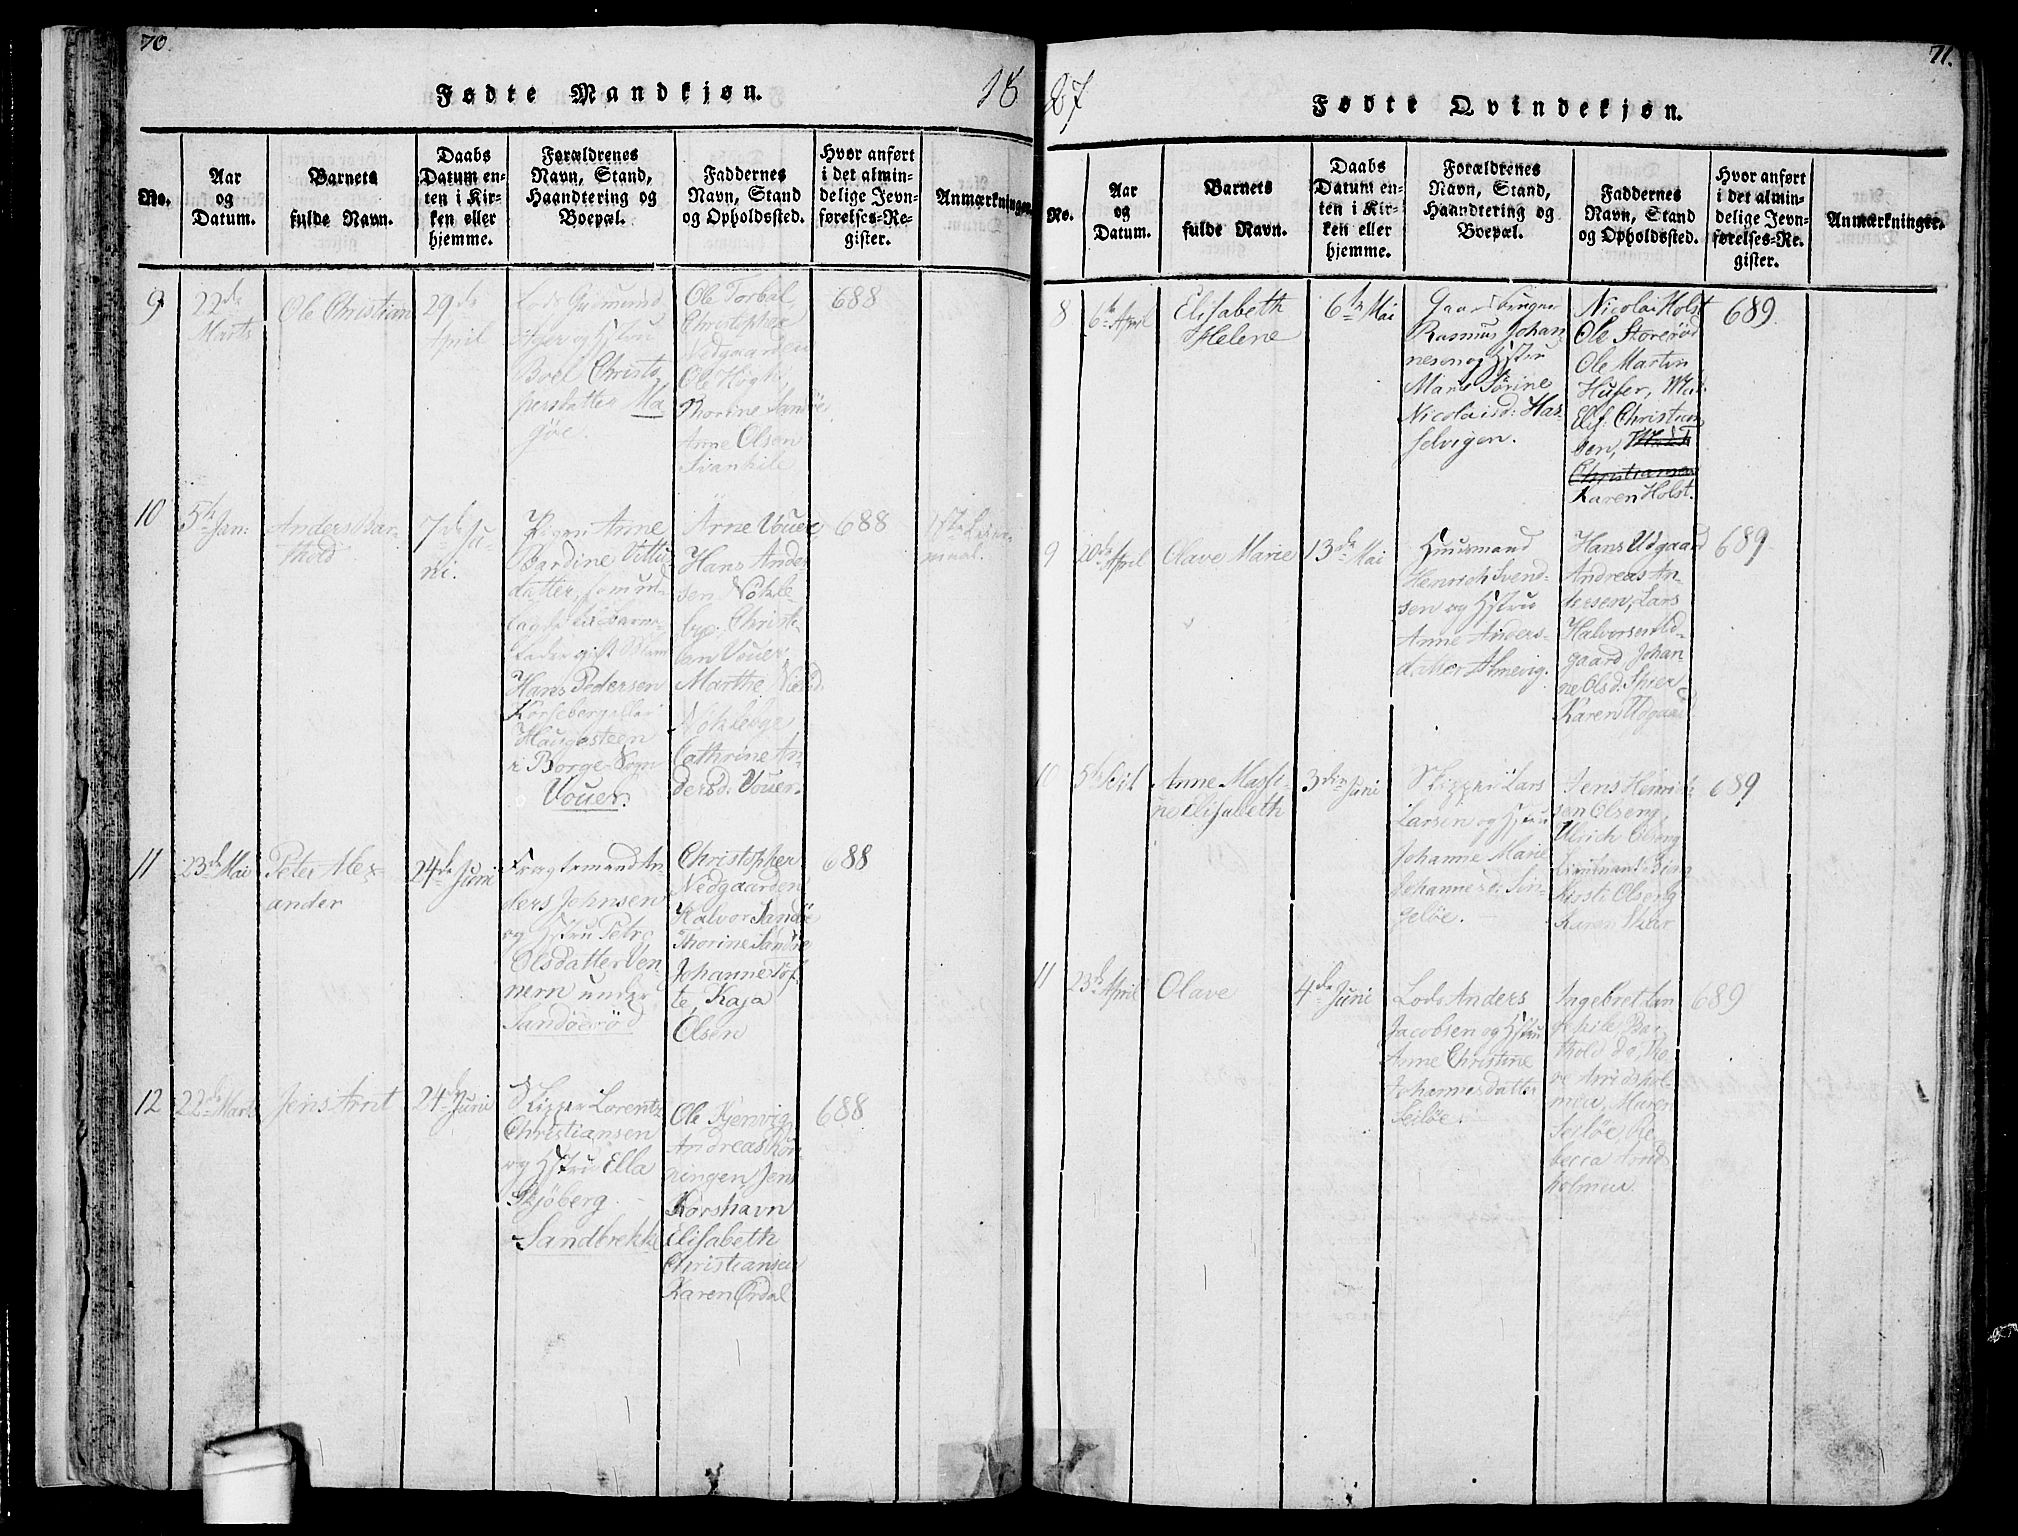 70.
Fødte Mandkjøn.
18
No.
Aar
og
Datum.
Barnets
fulde Navn.
Daabs
Datum en-
ten i Kir-
ken eller
hjemme.
Forældrenes
Navn, Stand,
Haandtering og
Boepæl.
Faddernes
Navn, Stand
og Opholdssted.
Hvor anført
i det almin-
delige Jevn-
førelses-Re-
gister.
Anmærkninger.
9
22de
Marts
Ole Christian
29de
April
Lods Gudmund
og Hstru
Boel Christo
phersdatter Ma
göe.
Ole Torbal,
Christopher
Nedgaarden
Ole Høgh
Thorine Sandöe
Anne Olsen
Svankile
688
10
5te Jan:
Anders Bar-
thold
7de Ju-
ni.
Pigen Anne
Bardine
datter, som ud-
lagde til Barne-
fader gift Mand
Hans Pedersen
Korseberg eller
Haugesteen
i Borge-Sogn
Vouer.
Arne Vouer,
Hans Ander
sen Nökle
bye, Christi
an Vouer,
Marthe
Nöklebye
Cathrine An-
dersd: Vouer.
688
11
23de Mai
Peter Alex-
ander
24de Juni
Fragtemand An-
ders Johnsen
og Hstru Petre
Olsdatter Ven-
nern under
Sandöeröd
Christopher
Nedgaarden
Halvor Sandöe
Thorine Sandöe
Johanne Tof-
te, Kaja
Olsen
688
12
22de Marts
Jens Arnt
24de Juni
Skipper Lorentz
Christiansen
og Hstru Ella
Skjöberg
Sandbrekke
Ole Kjenvig
Andreas Kon-
ningen, Jens
Korshavn
Elisabeth
Christiansen
Karen Ördal
688
71.
27
Fødte Qvindekjøn.
No.
Aar
og
Datum.
Barnets
fulde Navn.
Daabs
Datum en-
ten i Kir-
ken eller
hjemme.
Forældrenes
Navn, Stand,
Haandtering og
Boepæl.
Faddernes
Navn, Stand
og Opholdssted.
Hvor anført
i det almin-
delige Jevn-
førelses-Re-
gister.
Anmærkninger.
8
6te April
Elisabeth
Helene
6te Mai
Gaardbruger
Rasmus Johan-
nesen og Hstru
Maria Sörine
Nicolaisd: Has-
selvigen.
Nicolai Holst
Ole Storeröd
Ole Martin
Huser,
Elis: Christian
sen,
Christiansen
Karen Holst.
689.
9
20de April
Olave Marie
13de Mai
Huusmand
Henrich Svend-
sen og Hstru
Anne Anders-
datter Almevig.
Hans Udgaard
Andreas An-
dersen, Lars
Halvorsen Ud-
gaard, Johan-
ne Olsd. Spier
Karen Udgaard
689.
10
Anne Massi-
ne Elisabeth
3die Juni
Skipper Lars
Larsen og Hstru
Johanne Marie
Johannesd. Sin-
gelöe.
Jens Henrich
sen Olseng,
Ulrich Olseng
Lieutenant
Kirsti Olseng
Karen
689
11
23de April
Olave
4de Juni
Lods Anders
Jacobsen og Hstru
Anne Christine
Johannesdatter
Seilöe.
Ingebret
Bar-
thold do,
Arndshol-
men, Maren
Seilöe, Re-
becca Arnds
holmen.
689